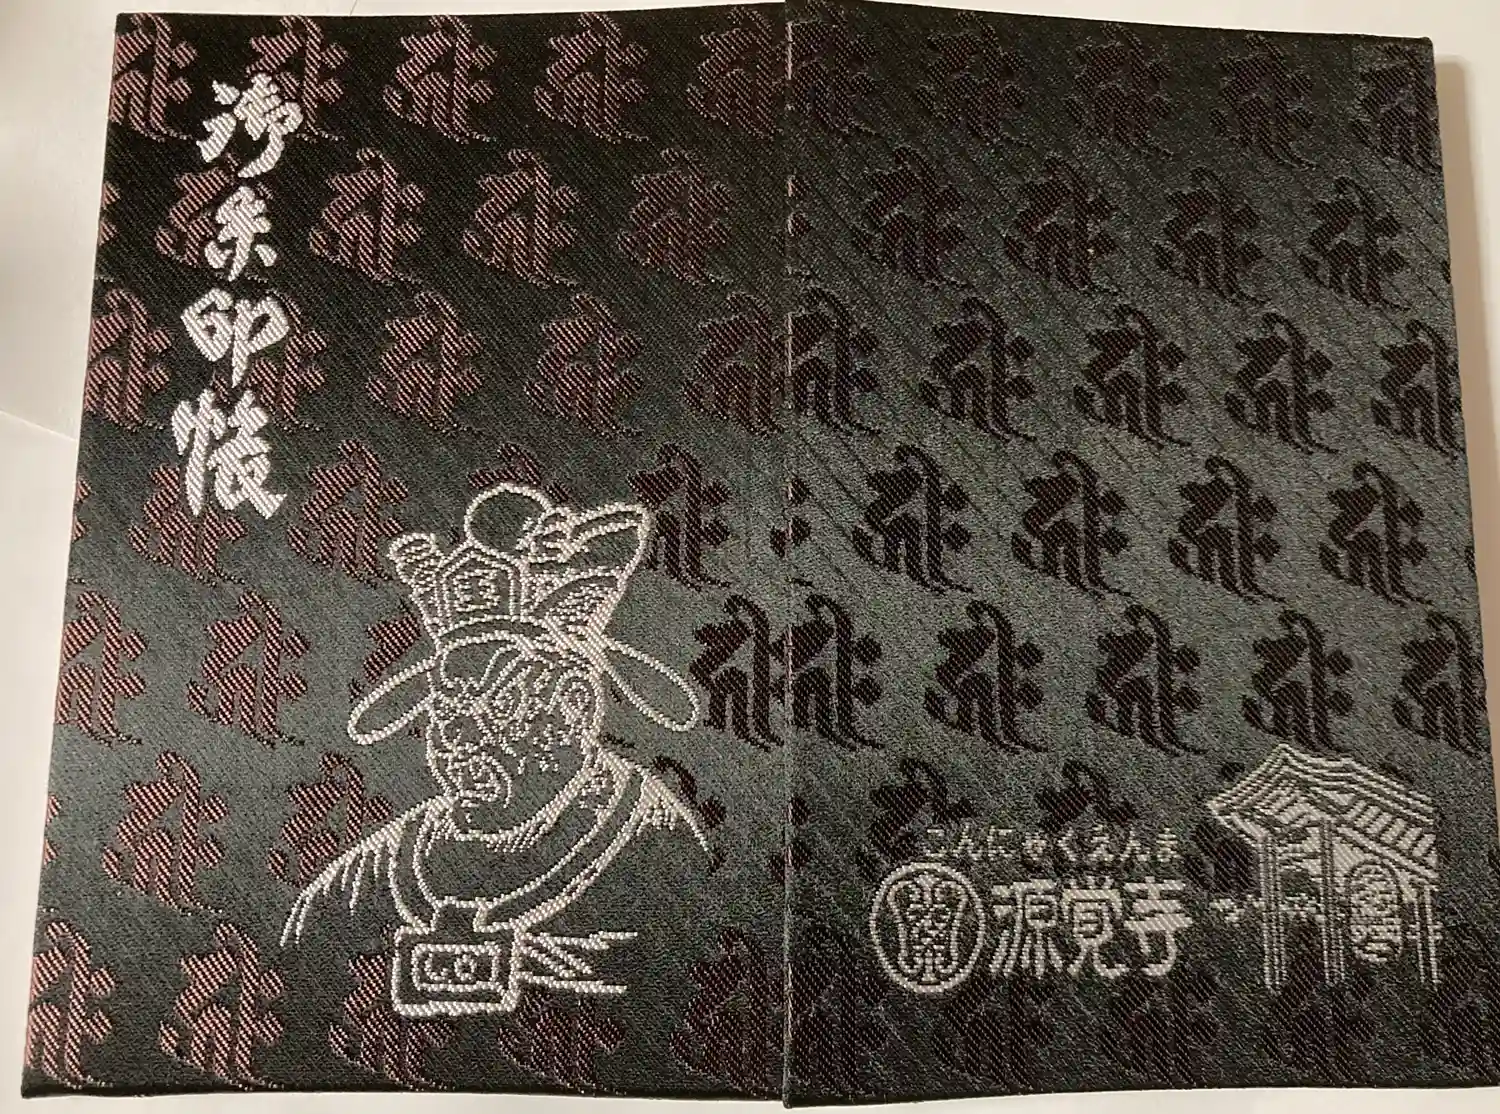 御朱印帳
こんにゃくえんま
源覚寺